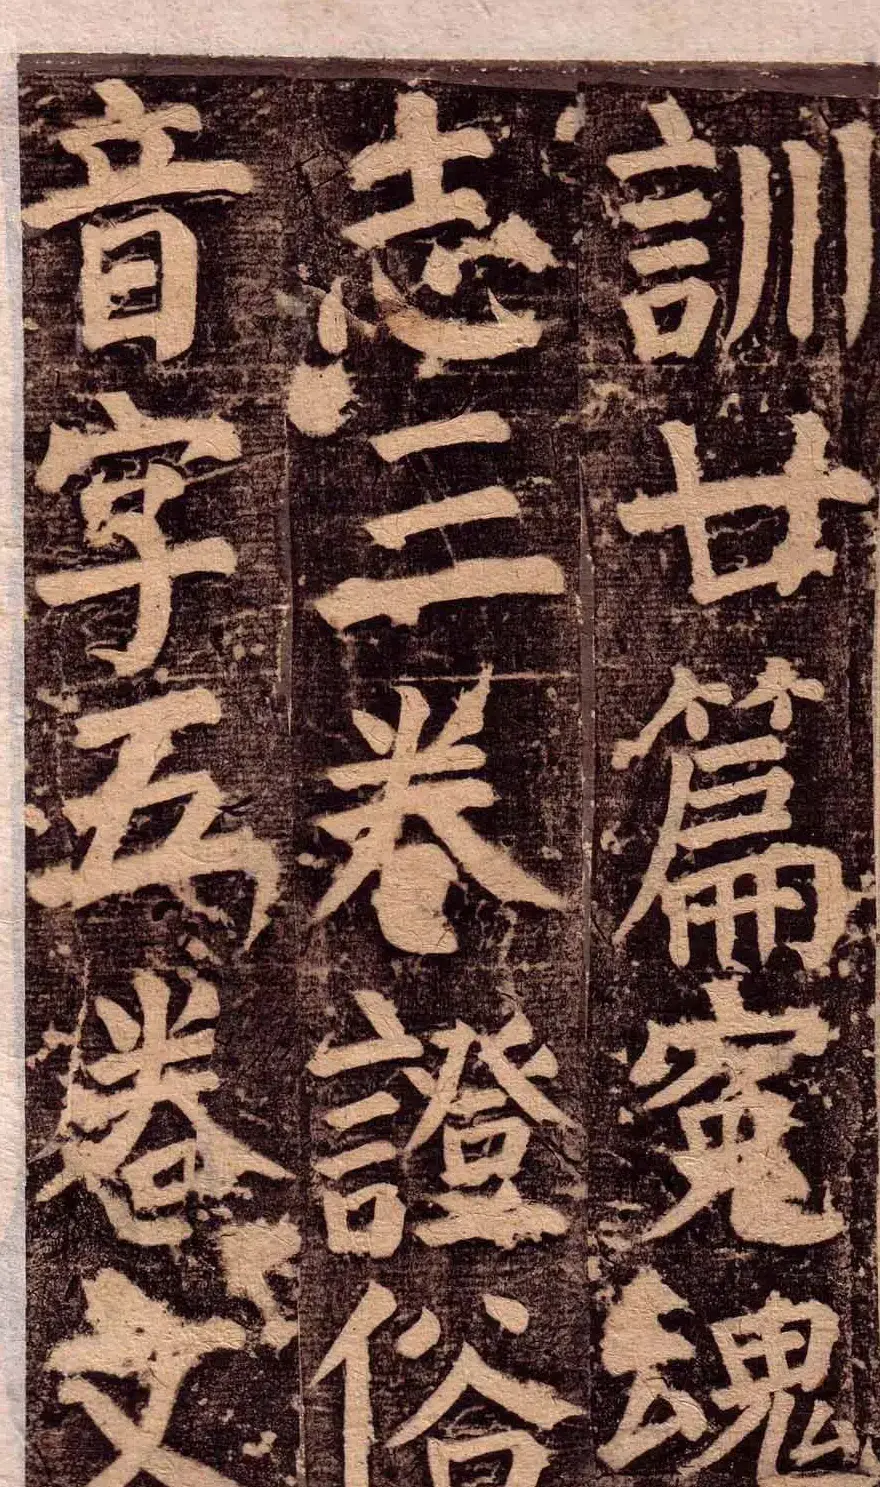 訓廿篇寃魂
志三卷證俗
音字五卷文